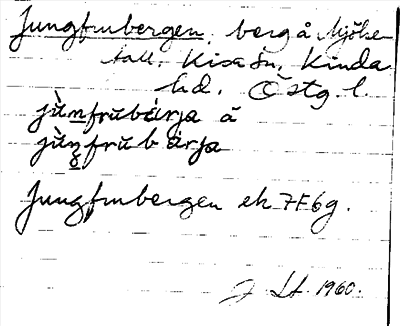 Jungfrubergen, berg å Mjöhe
tall, Kisa sn, Kinda
hd. Östg. l.
jùnfrŭbárja å
jùnfrŭbárja
Jungfrubergen ek 7F6g.
J. Lt. 1960.